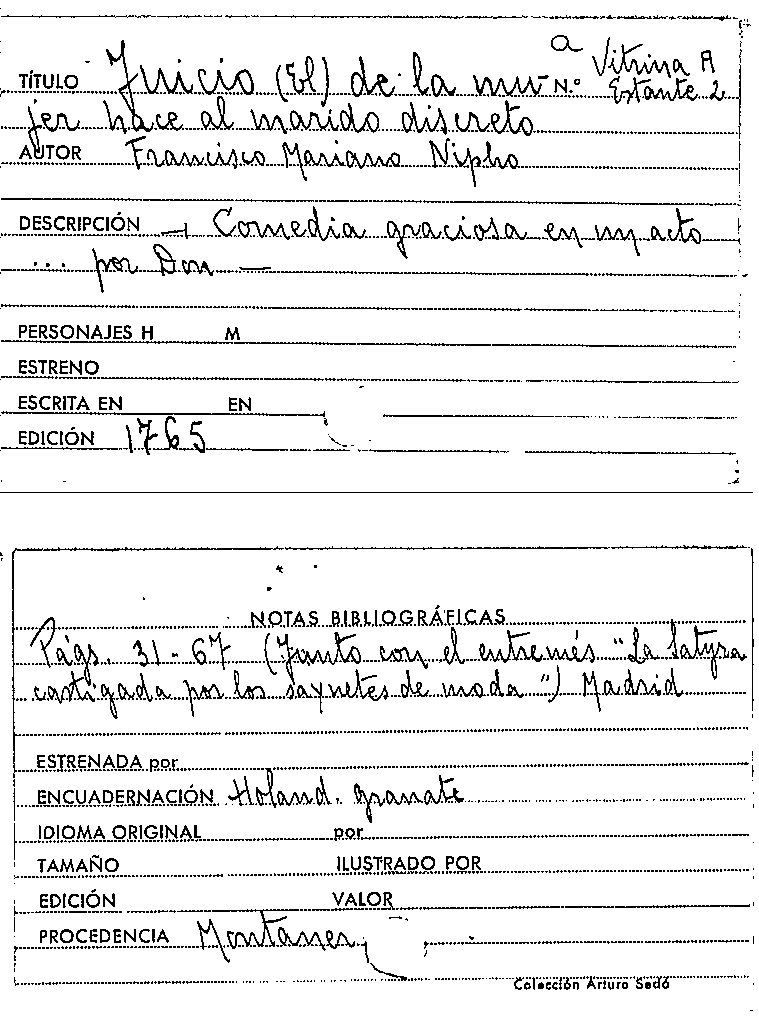 TÍTULO Juicio (El) de la mu- N.º a Vitrina A
Estante 2
jer hace al marido discreto
AUTOR Francisco Mariano Nipho
DESCRIPCIÓN → Comedia graciosa en un acto
... por Don —
PERSONAJES H M
ESTRENO
ESCRITA EN EN
EDICIÓN 1765
NOTAS BIBLIOGRÁFICAS
Págs. 31-67 (Junto con el entremés "La Satyra
castigada por los saynetes de moda") Madrid
ESTRENADA por
ENCUADERNACIÓN Holand. granate
IDIOMA ORIGINAL por
TAMAÑO ILUSTRADO POR
EDICIÓN VALOR
PROCEDENCIA Montaner
Colección Arturo Sedó